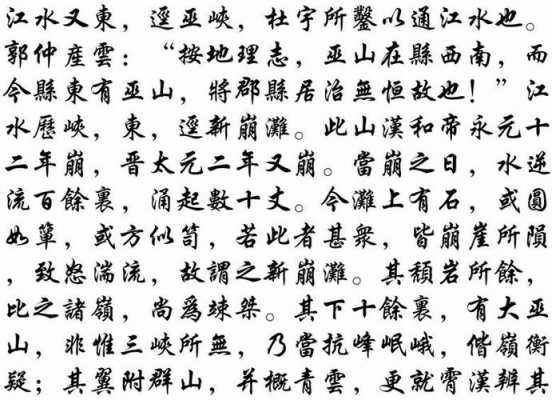 江水又東，逕巫峽，杜宇所鑿以通江水也。
郭仲産雲：“按地理志，巫山在縣西南，而
今縣東有巫山，將郡縣居治無恒故也！”江
水歷峽，東，逕新崩灘。此山漢和帝永元十
二年崩，晋太元二年又崩。當崩之日，水逆
流百餘裏，涌起數十丈。今灘上有石，或圓
如簞，或方似笥，若此者甚衆，皆崩崖所隕
，致怒湍流，故謂之新崩灘。其頹岩所餘，
比之諸嶺，尚爲竦桀。其下十餘裏，有大巫
山，非惟三峽所無，乃當抗峰岷峨，偕嶺衡
疑；其翼附群山，并概青雲，更就霄漢辨其